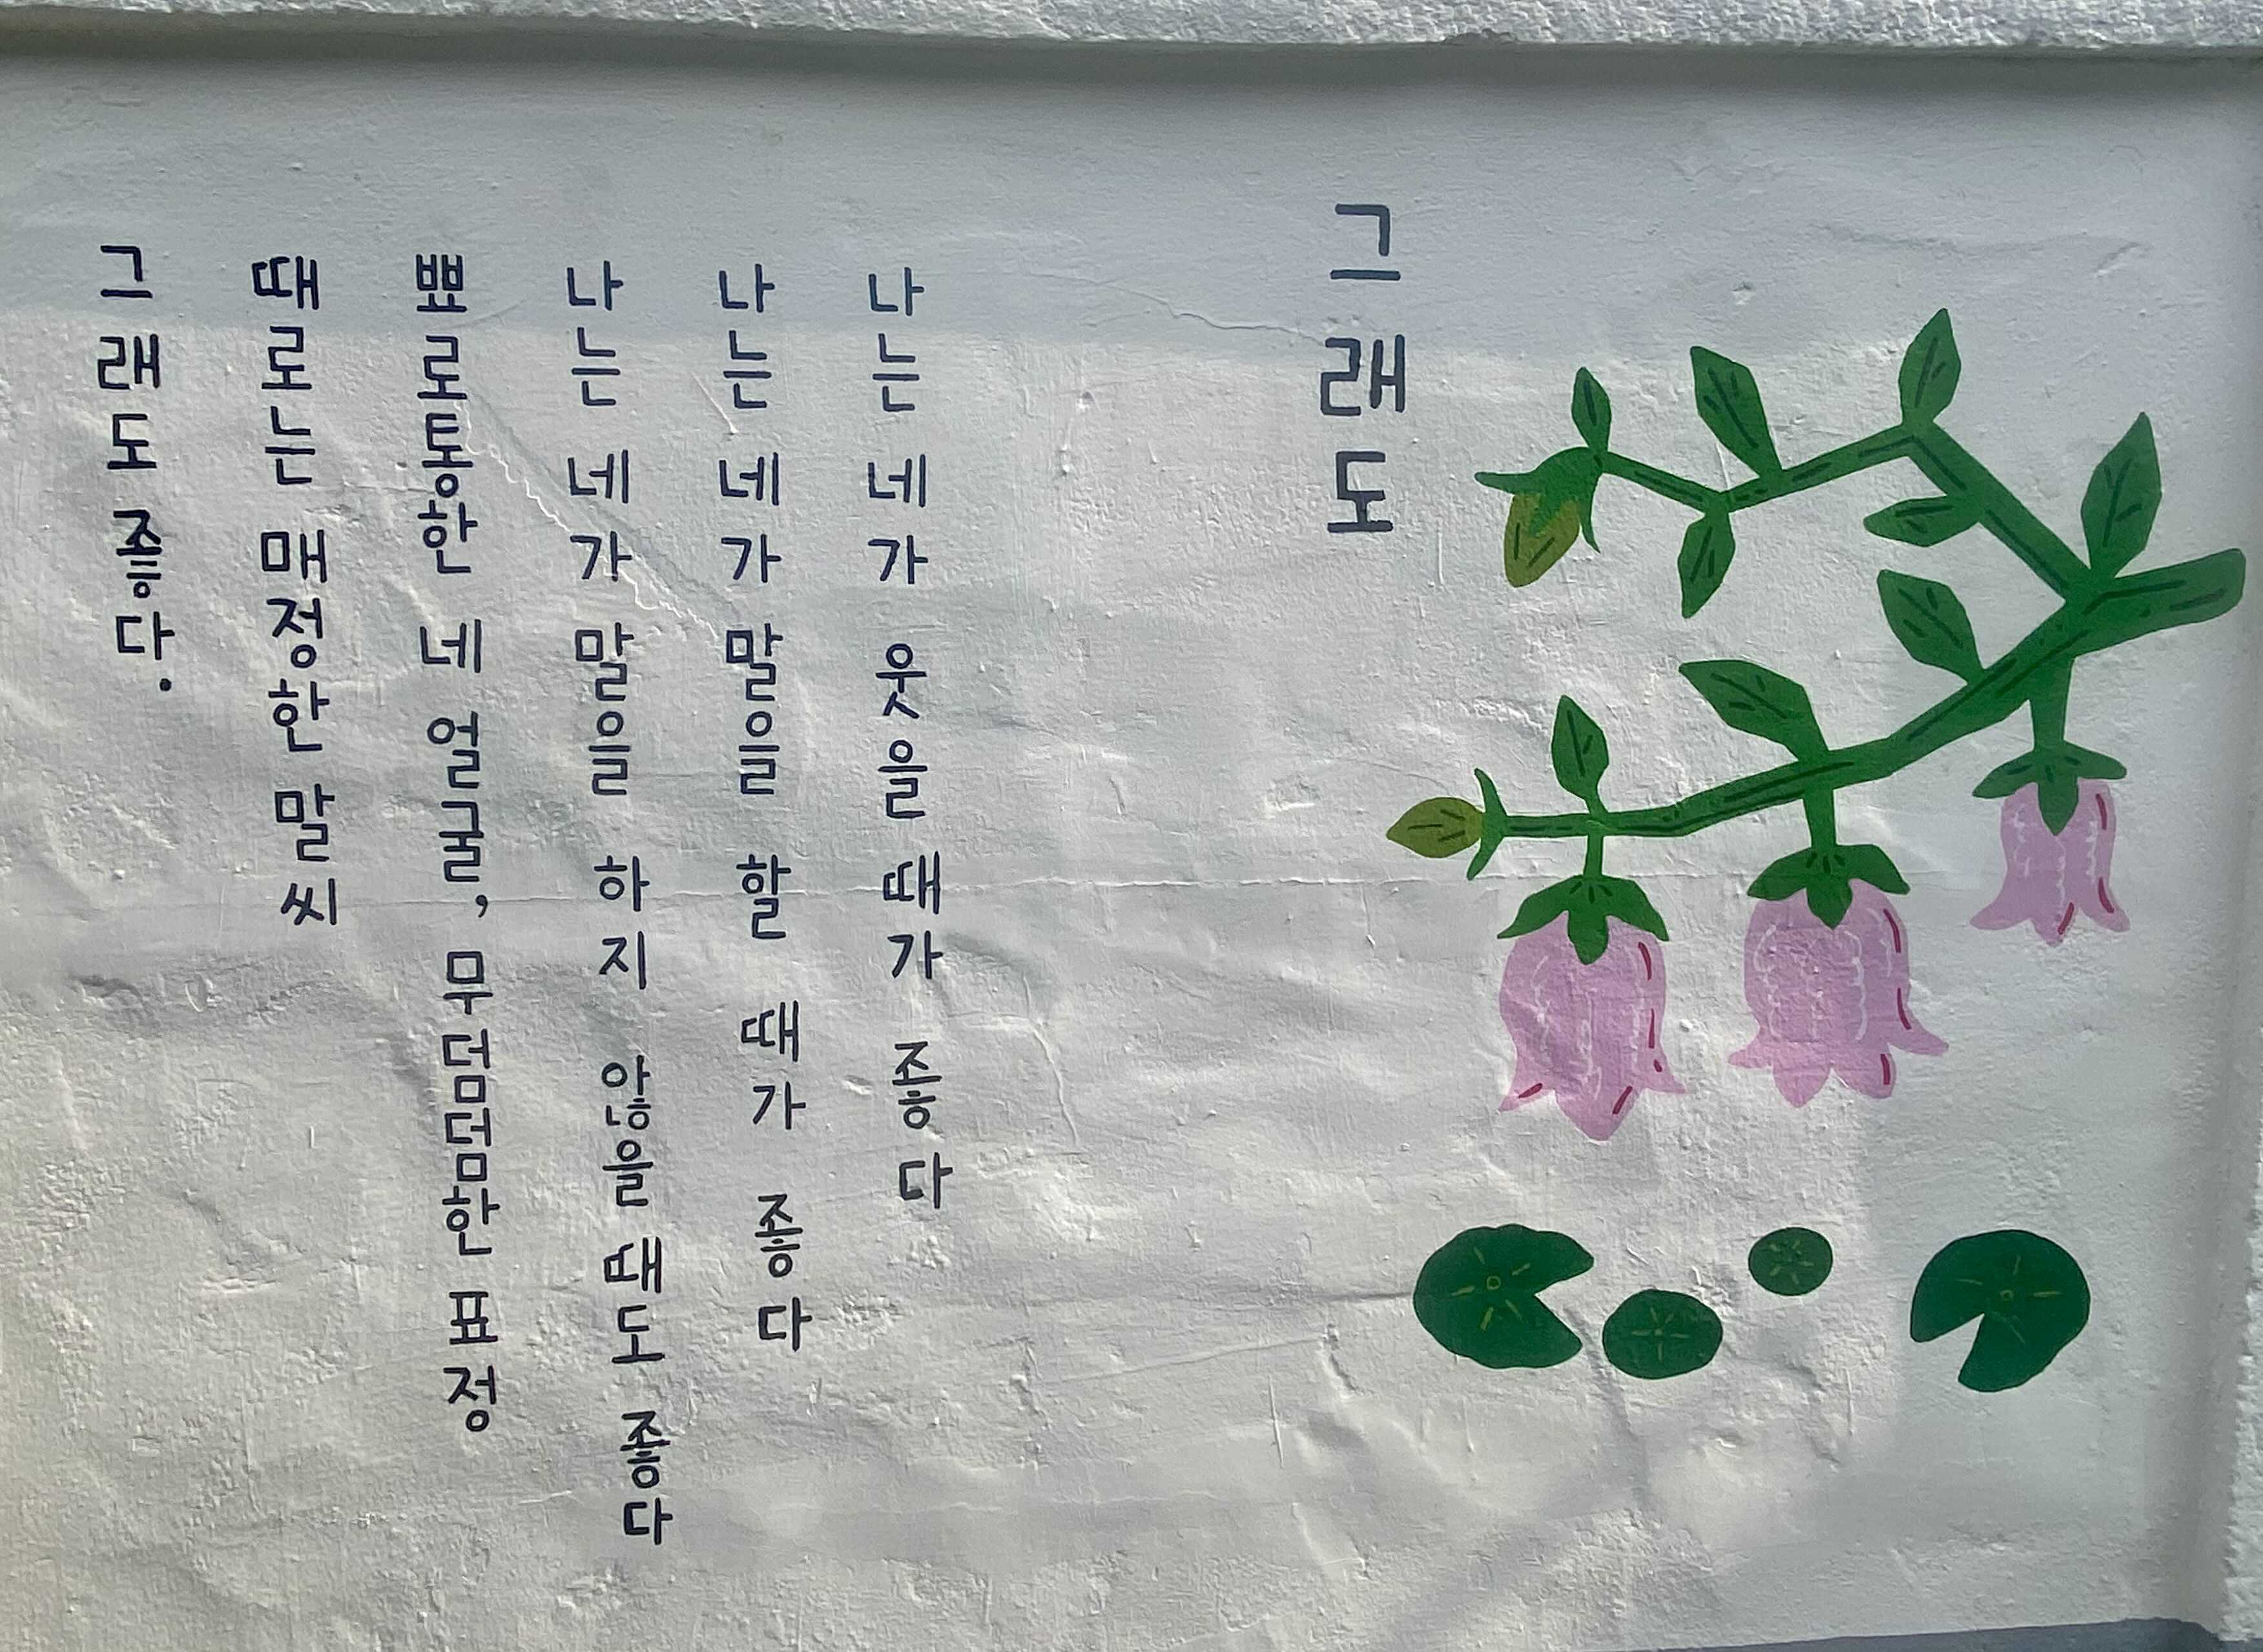 그래도
나는 네가 웃을 때가 좋다
나는 네가 말을 할 때가 좋다
나는 네가 말을 하지 않을 때도 좋다
뾰로통한 네 얼굴, 무덤덤한 표정
때로는 매정한 말씨
그래도 좋다.